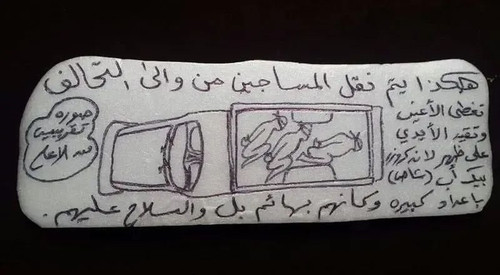 هكذا يتم نقل المساجين من والى التحالف
تغطى الأعين
وتقيد الأيدي
على ظهر لاندكروزر
بيك أب (شاص)
باعداد كبيره وكأنهم بهائم بل والسلاح عليهم.
صوره
تقريبية
من الأعلى